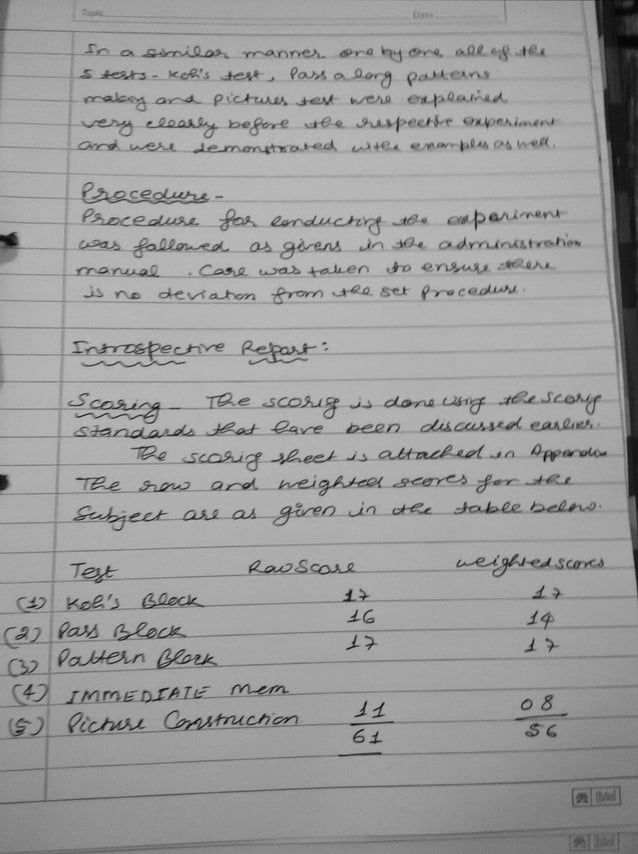 Topic
Date
In a similar manner one by one all of the
5 tests - Koh's test, Pass a long patterns
making and pictures test were explained
very clearly before the respective experiment
and were demonstrated with examples as well.
Procedure -
Procedure for conducting the experiment
was followed as givens in the administration
manual. Care was taken to ensure there
is no deviation from the set Procedure.
Introspective Report:
Scoring - The scorig is done using the scorig
standards that have been discussed earlier.
The scorig sheet is attached in Appendix
The row and weighted scores for the
Subject are as given in the table below.
Test Raw Score weighted scores
(1) Koh's Block 17 17
(2) Pass Block 16 14
(3) Pattern Block 17 17
(4) IMMEDIATE mem
(5) Picture Construction 11 08
61 56